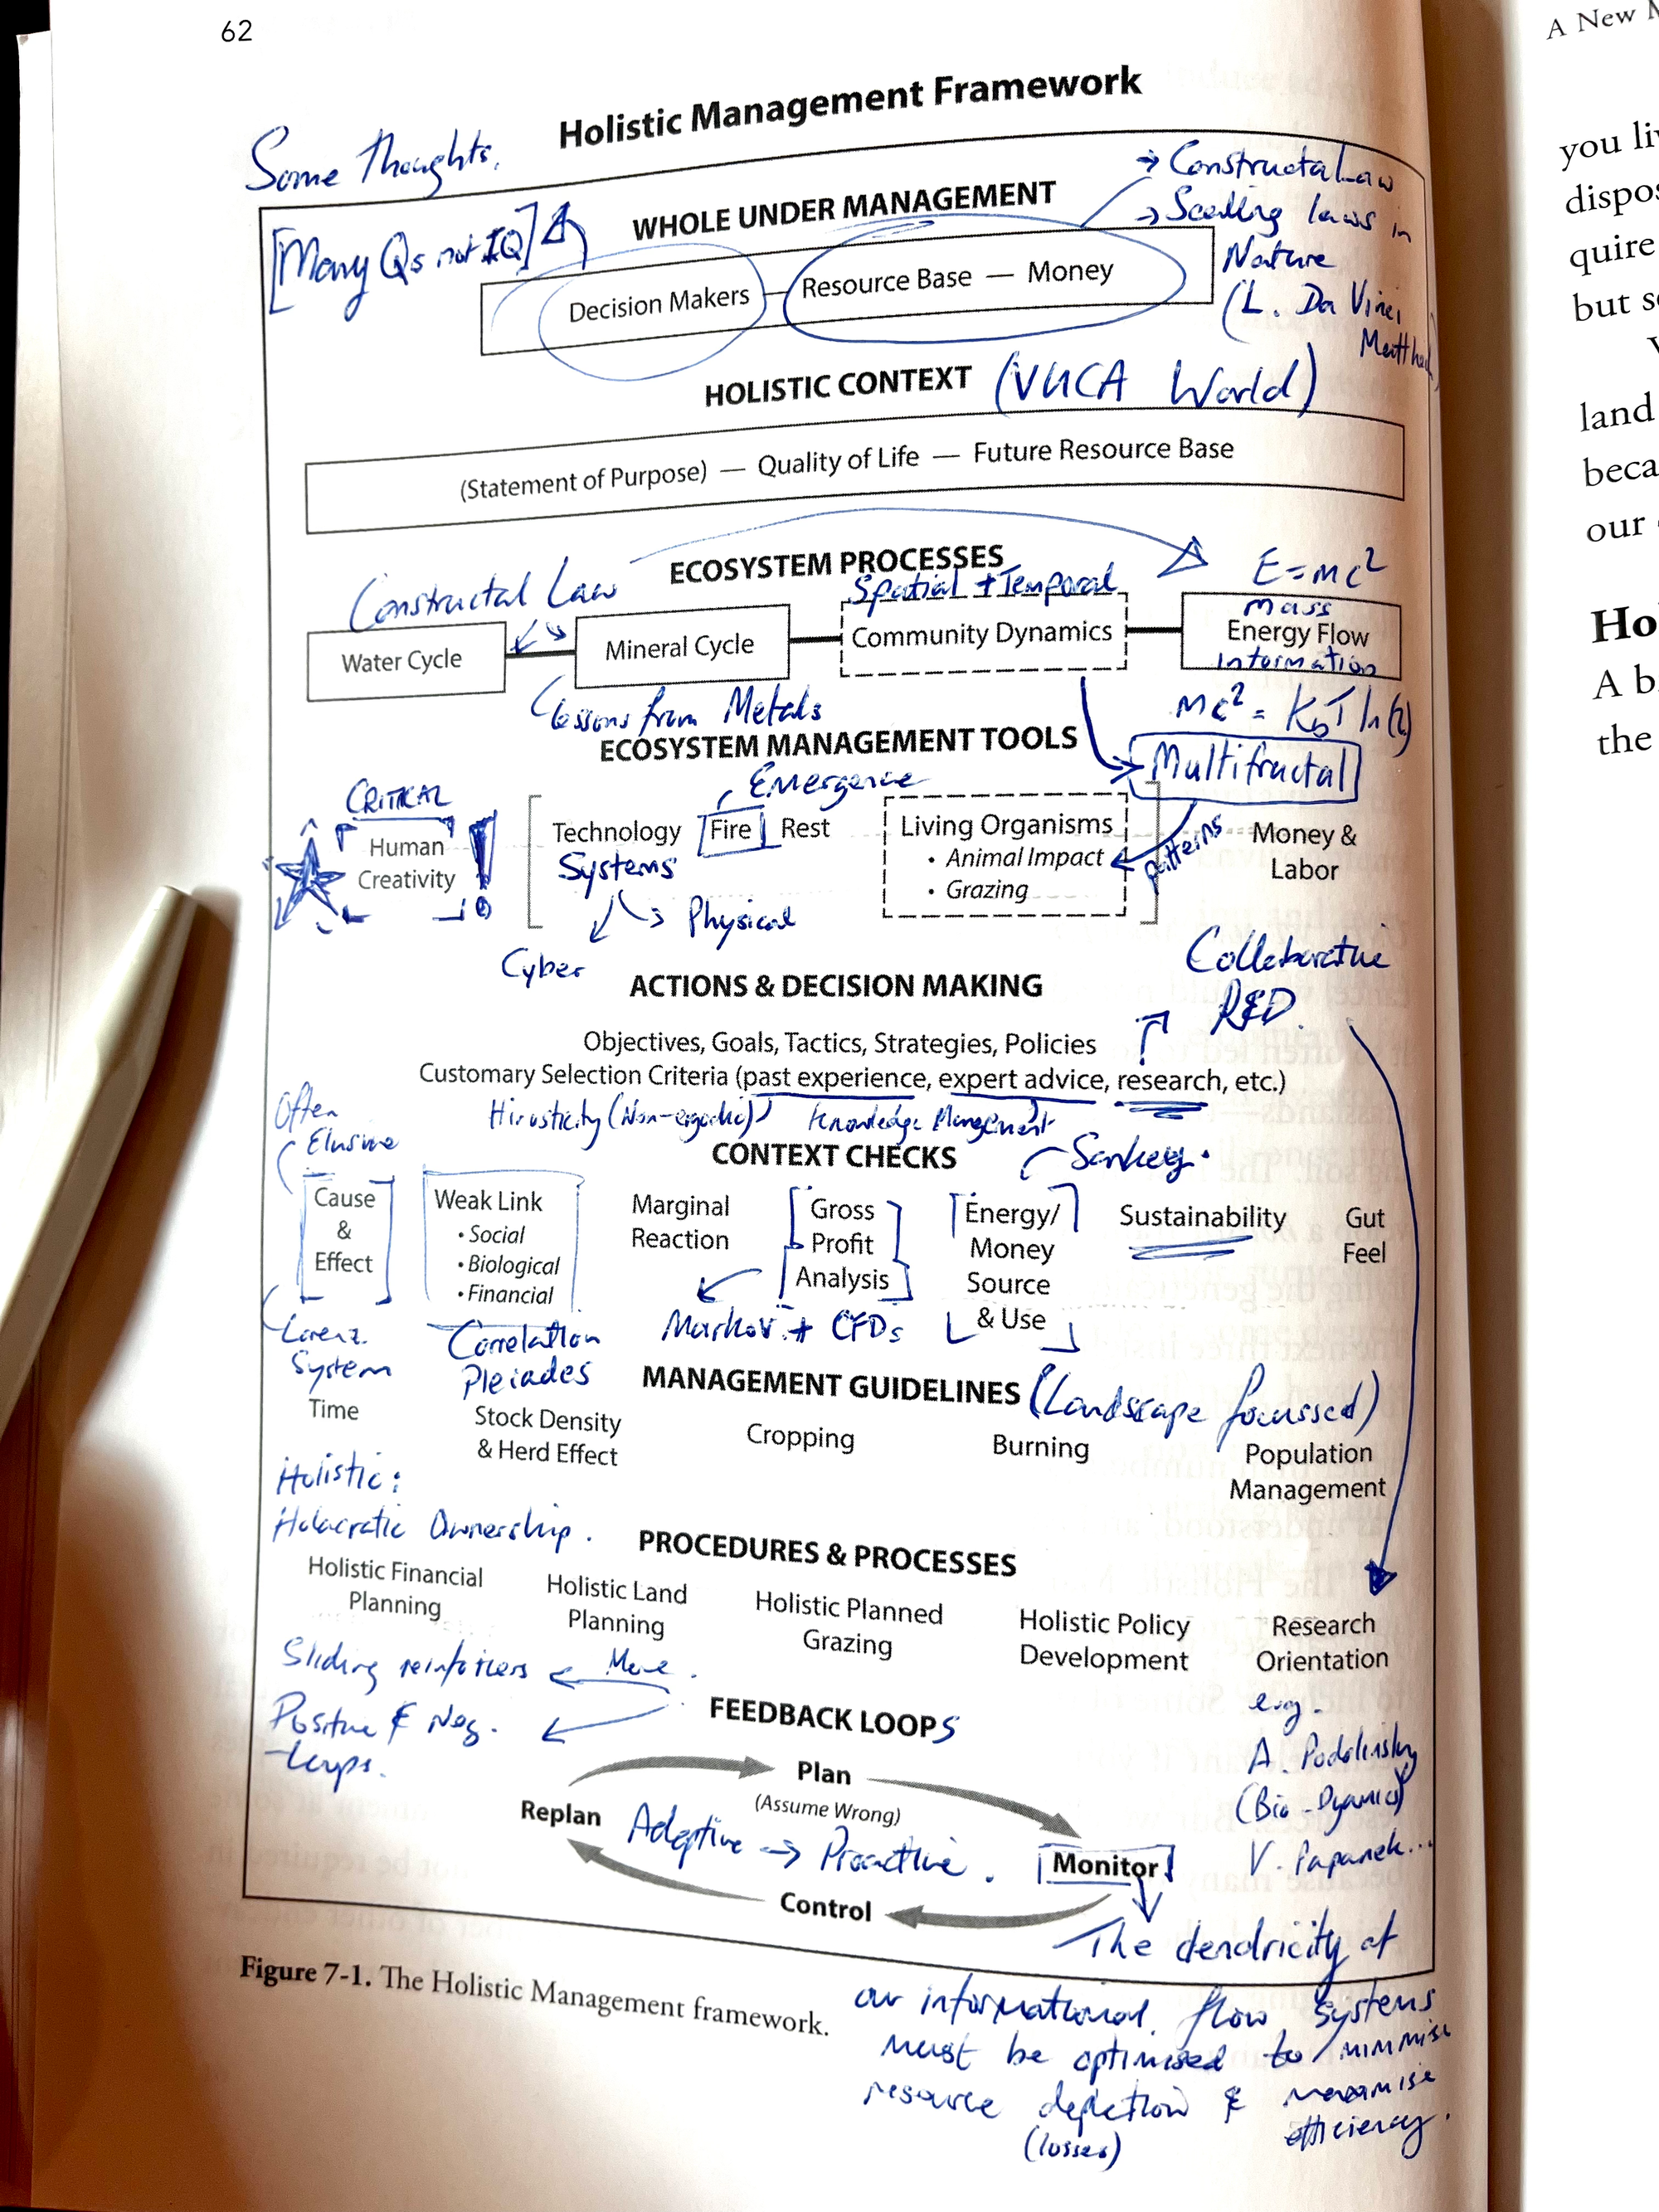 62
Holistic Management Framework
Some Thoughts.
WHOLE UNDER MANAGEMENT
→ Constructal Law
→ Scaling laws in
Nature
(L. Da Vinci,
[Many Qs not IQ]
Decision Makers — Resource Base — Money
HOLISTIC CONTEXT (VUCA World)
(Statement of Purpose) — Quality of Life — Future Resource Base
ECOSYSTEM PROCESSES
Constructal Law
Spatial + Temporal
E=mc²
Water Cycle
Mineral Cycle
Community Dynamics
Mass
Energy Flow
Information
Lessons from Metals
mc² = KbT ln(2)
ECOSYSTEM MANAGEMENT TOOLS
Multifractal
Emergence
CRITICAL
Human
Creativity
!
Technology Fire Rest
Systems
Physical
Cyber
Living Organisms
• Animal Impact
• Grazing
Patterns
Money &
Labor
Collaborative
R&D.
ACTIONS & DECISION MAKING
Objectives, Goals, Tactics, Strategies, Policies
Customary Selection Criteria (past experience, expert advice, research, etc.)
(Non-ergodic) Knowledge Management
Often
Elusive
CONTEXT CHECKS
Sankey.
Cause
&
Effect
Weak Link
• Social
• Biological
• Financial
Marginal
Reaction
Gross
Profit
Analysis
Energy/
Money
Source
& Use
Sustainability
Gut
Feel
Lorenz
System
Correlation
Pleiades
Markov + CFDs
MANAGEMENT GUIDELINES (Landscape focussed)
Time
Stock Density
& Herd Effect
Cropping
Burning
Population
Management
Holistic:
Holacratic Ownership.
PROCEDURES & PROCESSES
Holistic Financial
Planning
Holistic Land
Planning
Holistic Planned
Grazing
Holistic Policy
Development
Research
Orientation
e.g.
A. Podolinsky
(Bio-Dynamics)
V. Papanek...
Sliding reinforcers
Positive & Neg.
-Loops.
FEEDBACK LOOPS
Plan
(Assume Wrong)
Replan
Adaptive → Proactive.
Monitor
Control
The dendricity of
our informational flow systems
must be optimised to minimise
resource depletion & maximise
(losses) efficiency.
Figure 7-1. The Holistic Management framework.
A New
you li
dispos
quire
but s
land
beca
our
Ho
A b
the